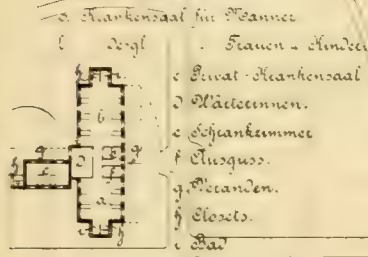 a. Krankensaal für Männer
b dergl. Frauen u Kinder
c Privat-Krankensaal
d Wärterinnen.
e Schrankzimmer
f Ausguss.
g Veranden.
h Closets.
i Bad